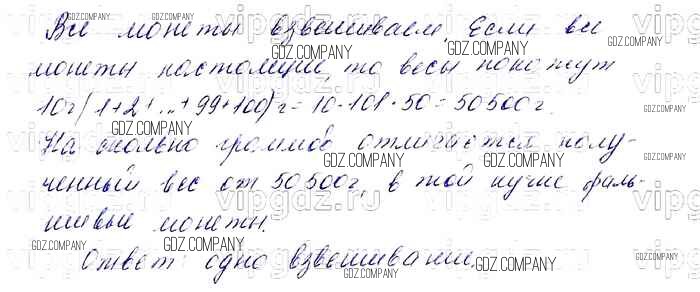 Все монеты взвешиваем. Если все
монеты настоящие, то весы покажут
10г(1+2+...+99+100)г = 10·101·50 = 50500г.
На сколько граммов отличается полу-
ченный вес от 50500г, в той кучке фаль-
шивые монеты.
Ответ: одно взвешивание.
GDZ.COMPANY
vipgdz.ru